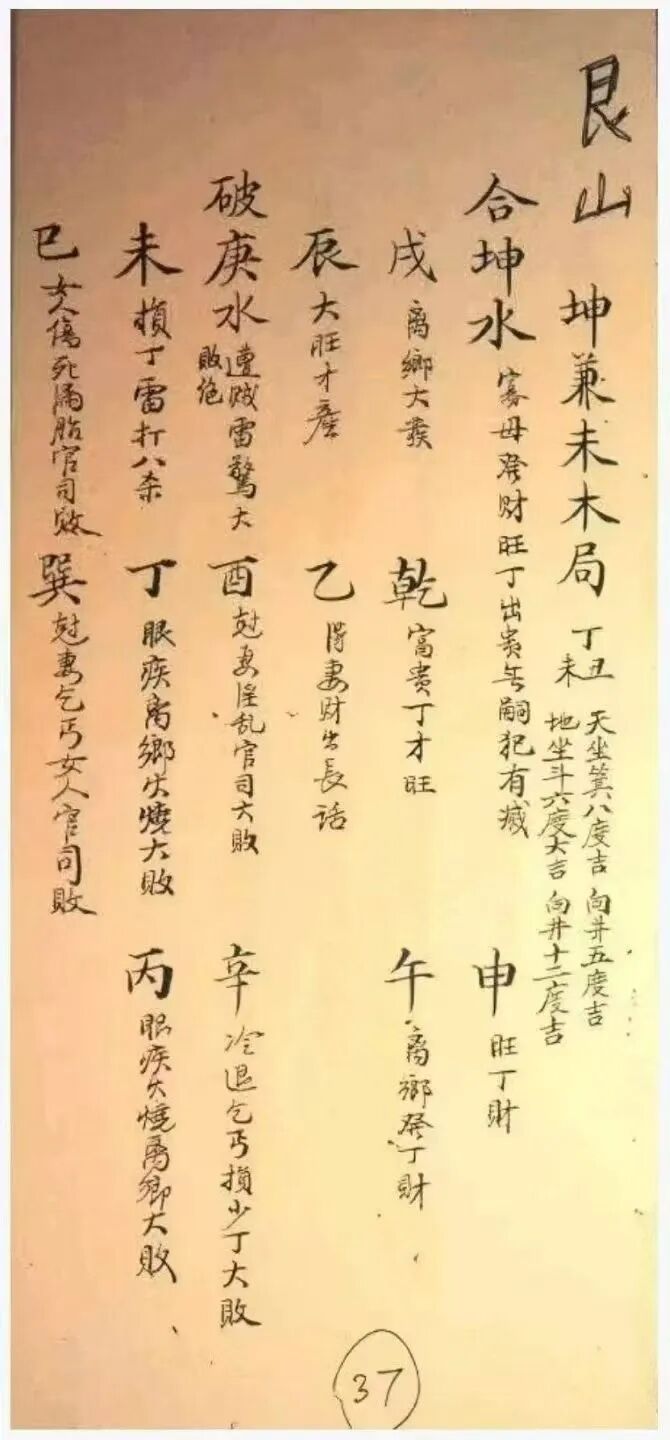 艮山
坤兼未木局 丁丑 丁未 天坐箕八度吉 向井五度吉
地坐斗六度大吉 向井十二度吉
合坤水 寡母發财旺丁出贵無嗣犯有瘋 申 旺丁財
戌 离鄉大發 乾 富贵丁才旺 午 离鄉發丁財
辰 大旺才產 乙 得妻財出長話
破庚水 遭贼雷驚大敗绝 酉 尅妻淫乱官司大敗 辛 冷退乞丐損少丁大敗
未 損丁雷打八杀 丁 眼疾离鄉火燒大敗 丙 眼疾火燒离鄉大敗
巳 女人傷死漏胎官司敗 巽 尅妻乞丐女人官司敗
37